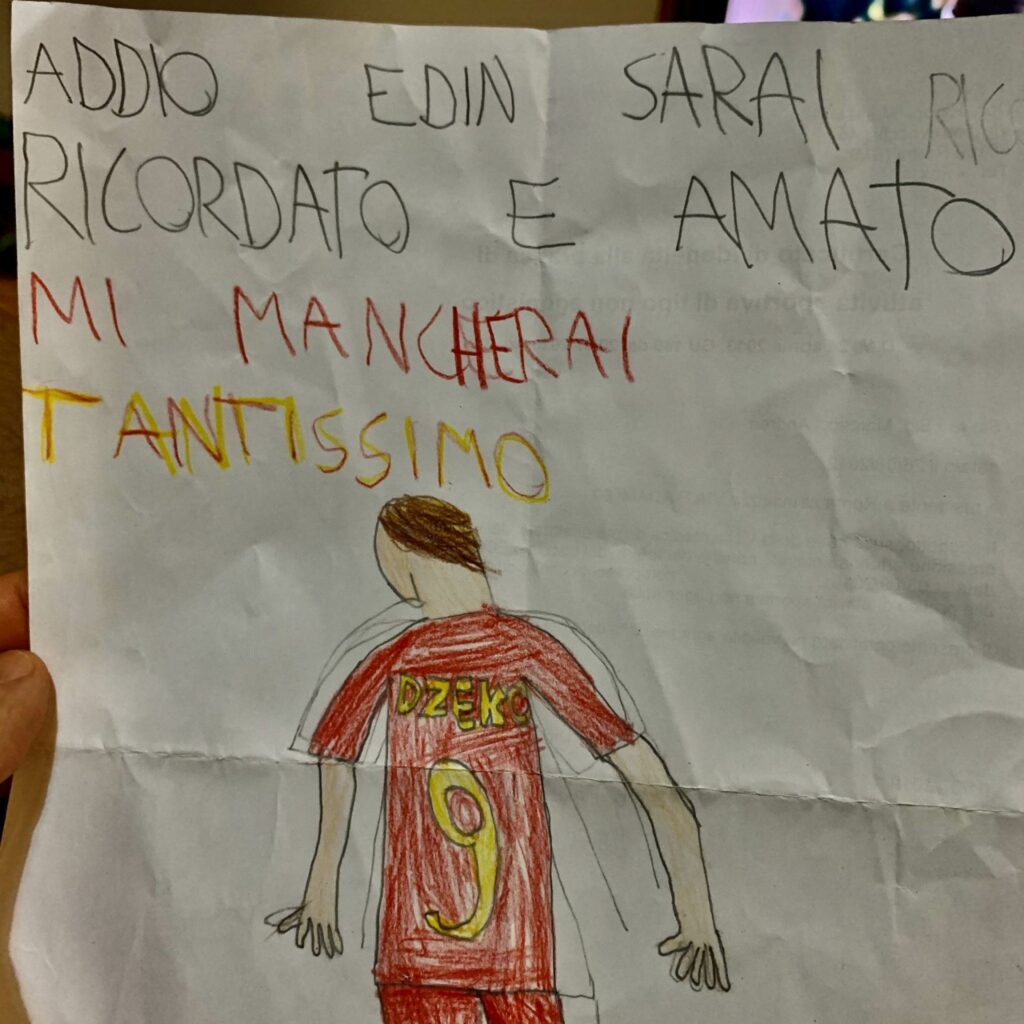 ADDIO EDIN SARAI RIC
RICORDATO E AMATO
MI MANCHERAI
TANTISSIMO
DZEKO
9